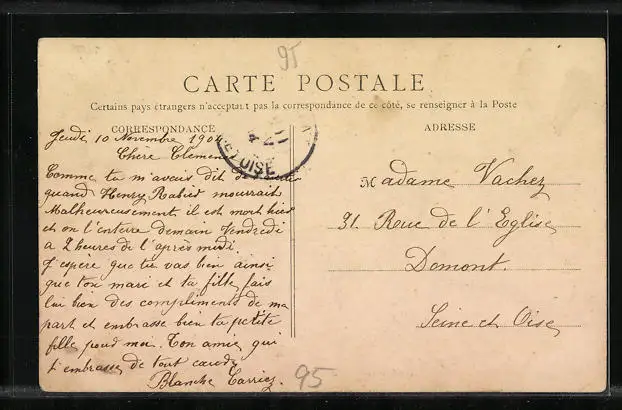 95
CARTE POSTALE
Certains pays étrangers n'acceptant pas la correspondance de ce côté, se renseigner à la Poste
CORRESPONDANCE
ADRESSE
Jeudi 10 Novembre 1904
Chère Clemen
Comme tu m'avais dit de
quand Henry Rabier mourrait
Malheureusement il est mort hier
et on l'enterre demain Vendredi
a 2 heures de l'après midi.
J'espère que tu vas bien ainsi
que ton mari et ta fille, fais
lui bien des compliments de ma
part et embrasse bien ta petite
fille pour moi. Ton amie, qui
t'embrasse de tout coeur
Blanche Carriez.
Madame Vachez
31. Rue de l'Eglise
Domont.
Seine et Oise
ET OISE
95